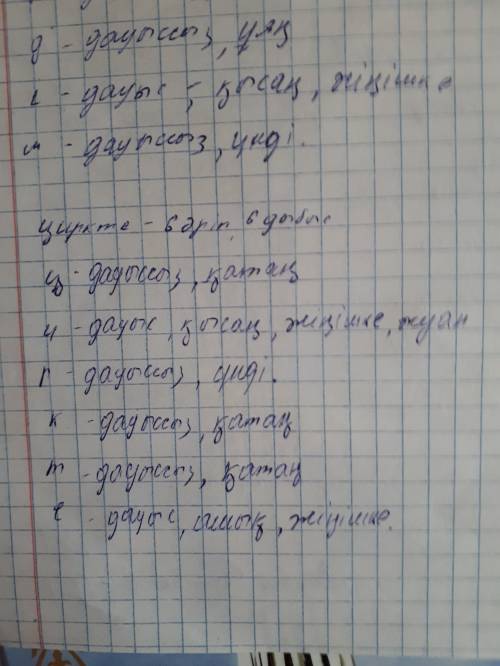 д - дауыссыз, ұяң
і - дауыс -, қысаң, жіңішке
м - дауыссыз, үнді.
циркте - 6 әріп, 6 дыбыс
ц - дауыссыз, қатаң
и - дауыс, қысаң, жіңішке, жуан
р - дауыссыз, үнді.
к - дауыссыз, қатаң
т - дауыссыз, қатаң
е - дауыс, ашық, жіңішке.